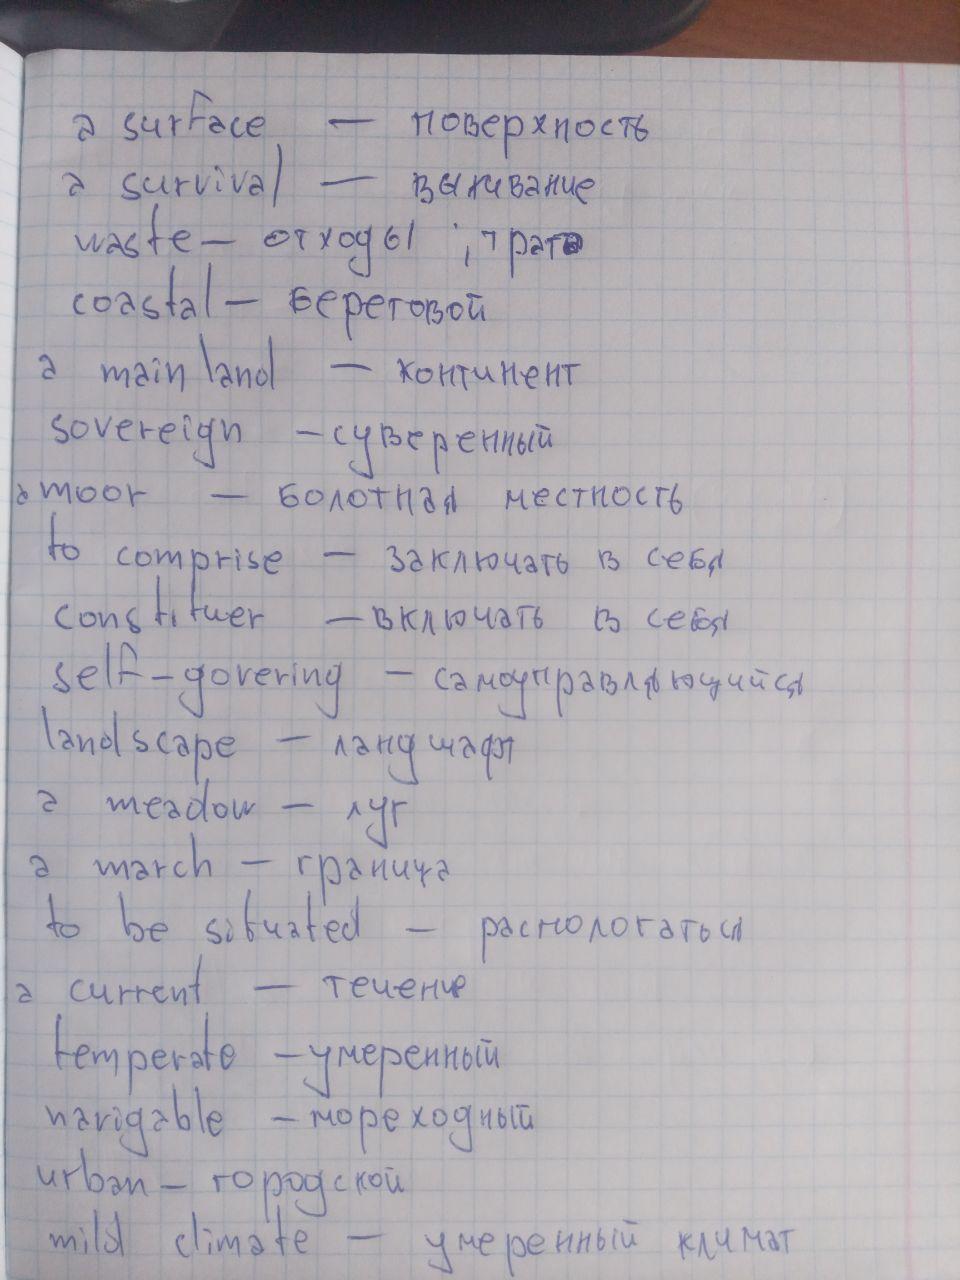 a surface — поверхность
a survival — выживание
waste — отходы ; трата
coastal — береговой
a mainland — континент
sovereign — суверенный
a moor — болотная местность
to comprise — заключать в себя
constituer — включать в себя
self-govering — самоуправляющийся
landscape — ландшафт
a meadow — луг
a march — граница
to be situated — распологаться
a current — течение
temperate — умеренный
navigable — мореходный
urban — городской
mild climate — умеренный климат